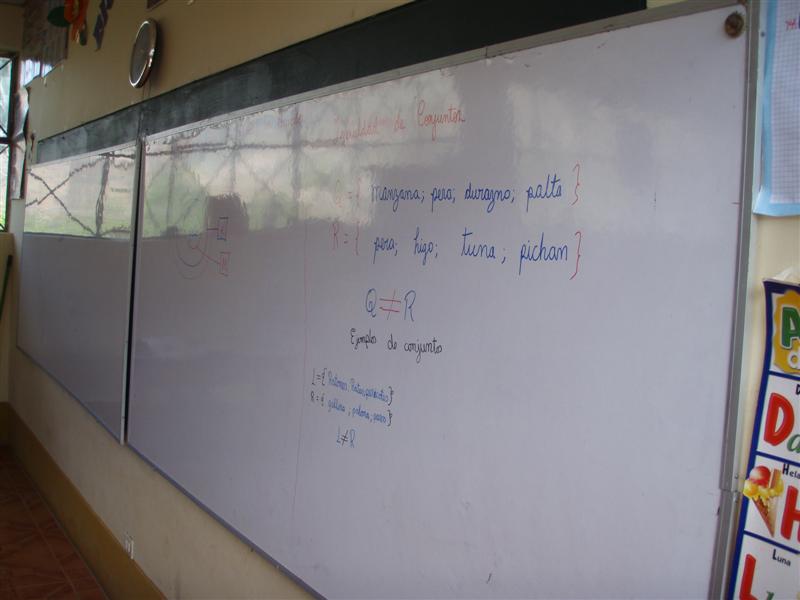 Igualdad de Conjuntos
Q = { manzana; pera; durazno; palta }
R = { pera; higo; tuna; pichan }
Q ≠ R
Ejemplos de conjuntos
L = { Ratones, Ratas, }
R = { gallina, paloma, pavo }
L ≠ R
A
D
Hela
H
Luna
L